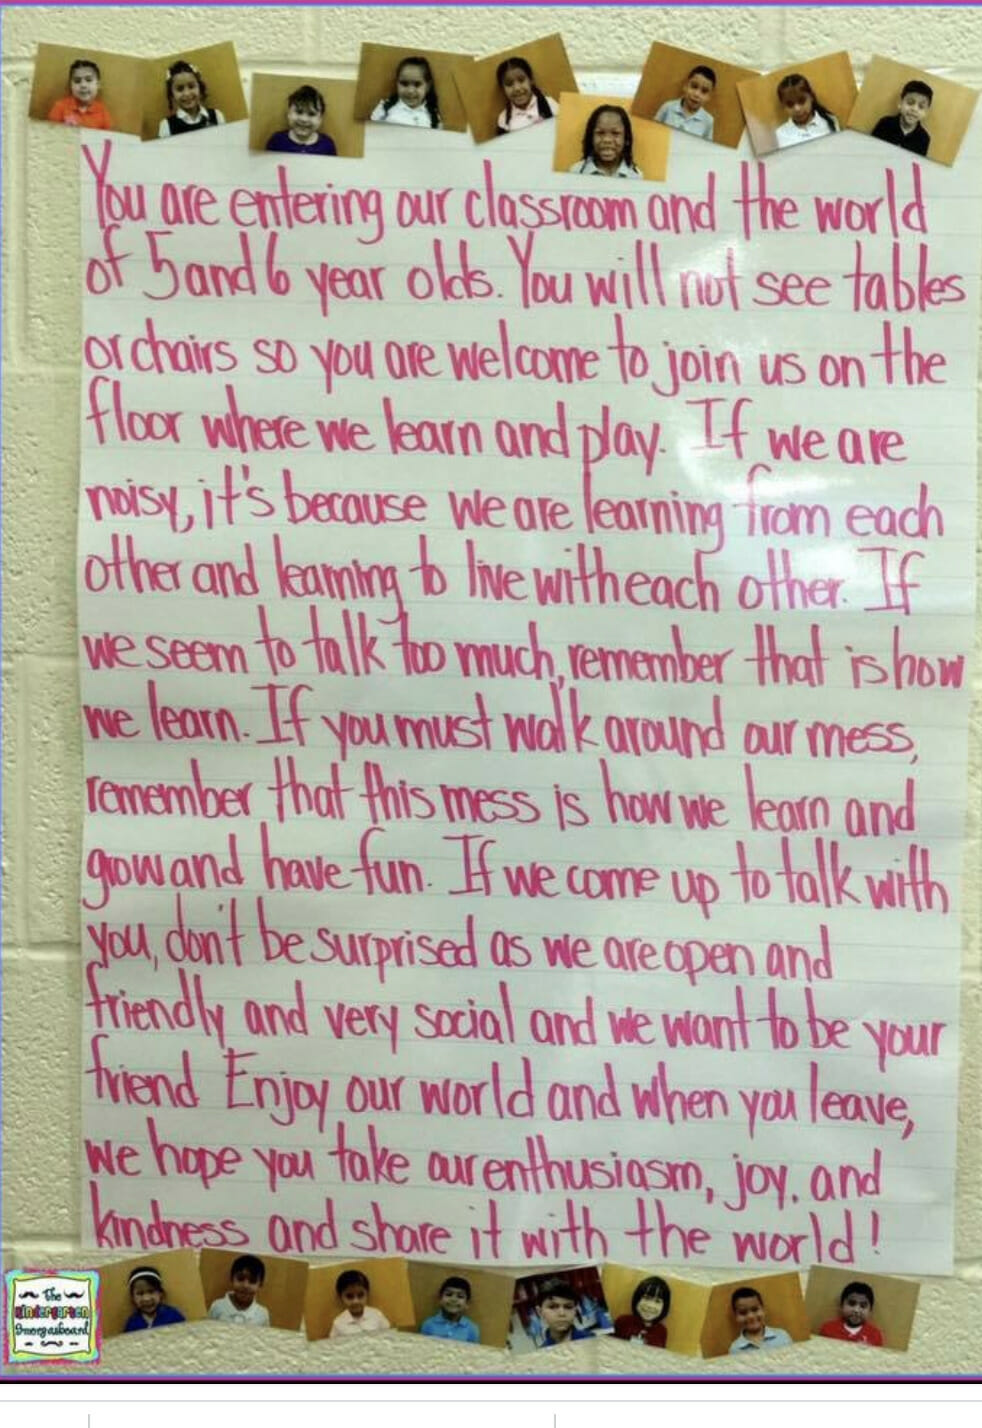 You are entering our classroom and the world
of 5 and 6 year olds. You will not see tables
or chairs so you are welcome to join us on the
floor where we learn and play. If we are
noisy, it's because we are learning from each
other and learning to live with each other. If
we seem to talk too much, remember that is how
we learn. If you must walk around our mess,
remember that this mess is how we learn and
grow and have fun. If we come up to talk with
you, don't be surprised as we are open and
friendly and very social and we want to be your
friend Enjoy our world and when you leave,
we hope you take our enthusiasm, joy, and
kindness and share it with the world!
The
Kindergarten
Smorgasboard